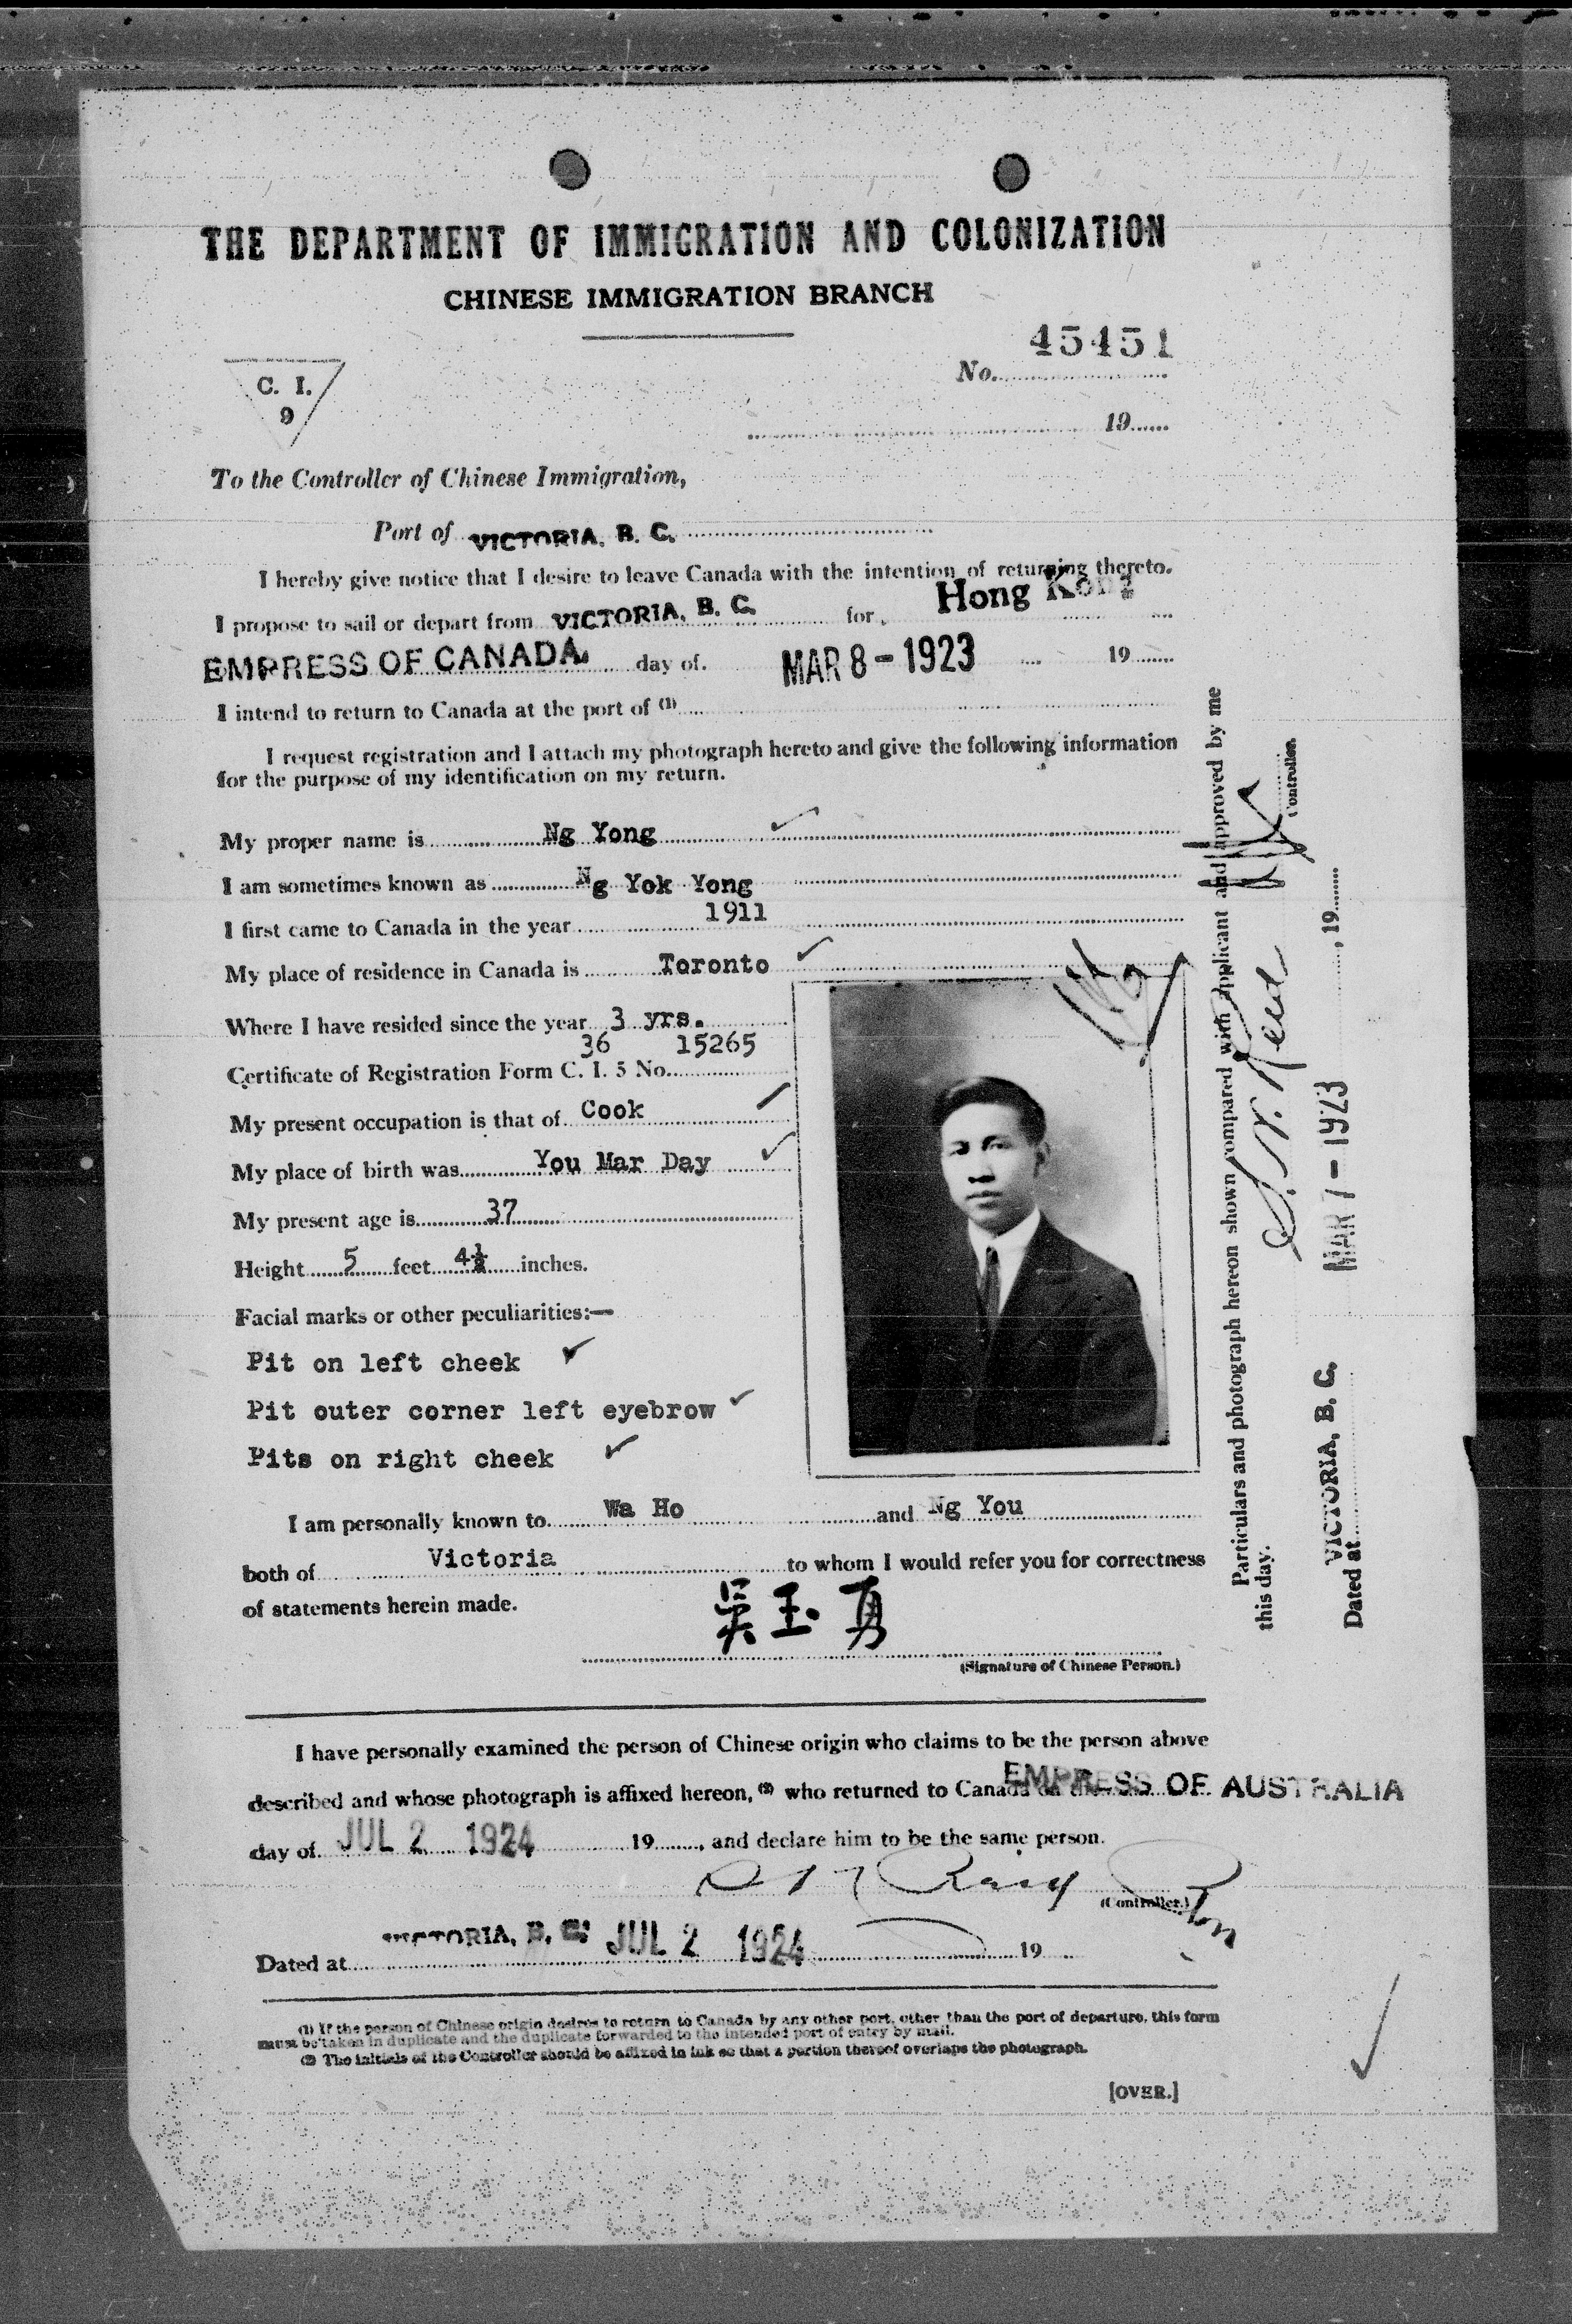 THE DEPARTMENT OF IMMIGRATION AND COLONIZATION
CHINESE IMMIGRATION BRANCH
45451
No.
C. I.
9
19
To the Controller of Chinese Immigration,
Port of VICTORIA, B. C.
I hereby give notice that I desire to leave Canada with the intention of returning thereto.
I propose to sail or depart from VICTORIA, B. C. for Hong Kong
EMPRESS OF CANADA day of MAR 8 - 1923 19
I intend to return to Canada at the port of (1)
I request registration and I attach my photograph hereto and give the following information
for the purpose of my identification on my return.
My proper name is Ng Yong
I am sometimes known as Ng Yok Yong
I first came to Canada in the year 1911
My place of residence in Canada is Toronto
Where I have resided since the year 3 yrs.
36 15265
Certificate of Registration Form C. I. 5 No.
My present occupation is that of Cook
My place of birth was You Mar Day
My present age is 37
Height 5 feet 4½ inches.
Facial marks or other peculiarities:—
Pit on left cheek
Pit outer corner left eyebrow
Pits on right cheek
I am personally known to Wa Ho and Ng You
both of Victoria to whom I would refer you for correctness
of statements herein made.
吳玉勇
(Signature of Chinese Person.)
I have personally examined the person of Chinese origin who claims to be the person above
described and whose photograph is affixed hereon, (2) who returned to Canada on the EMPRESS OF AUSTRALIA
day of JUL 2 1924 19, and declare him to be the same person.
(Controller.)
Dated at VICTORIA, B. C. JUL 2 1924 19
(1) If the person of Chinese origin desires to return to Canada by any other port, other than the port of departure, this form
must be taken in duplicate and the duplicate forwarded to the intended port of entry by mail.
(2) The initials of the Controller should be affixed in ink so that a portion thereof overlaps the photograph.
[OVER.]
Particulars and photograph hereon shown compared with applicant and approved by me
this day.
Controller.
Dated at VICTORIA, B. C. MAR 7 - 1923, 19